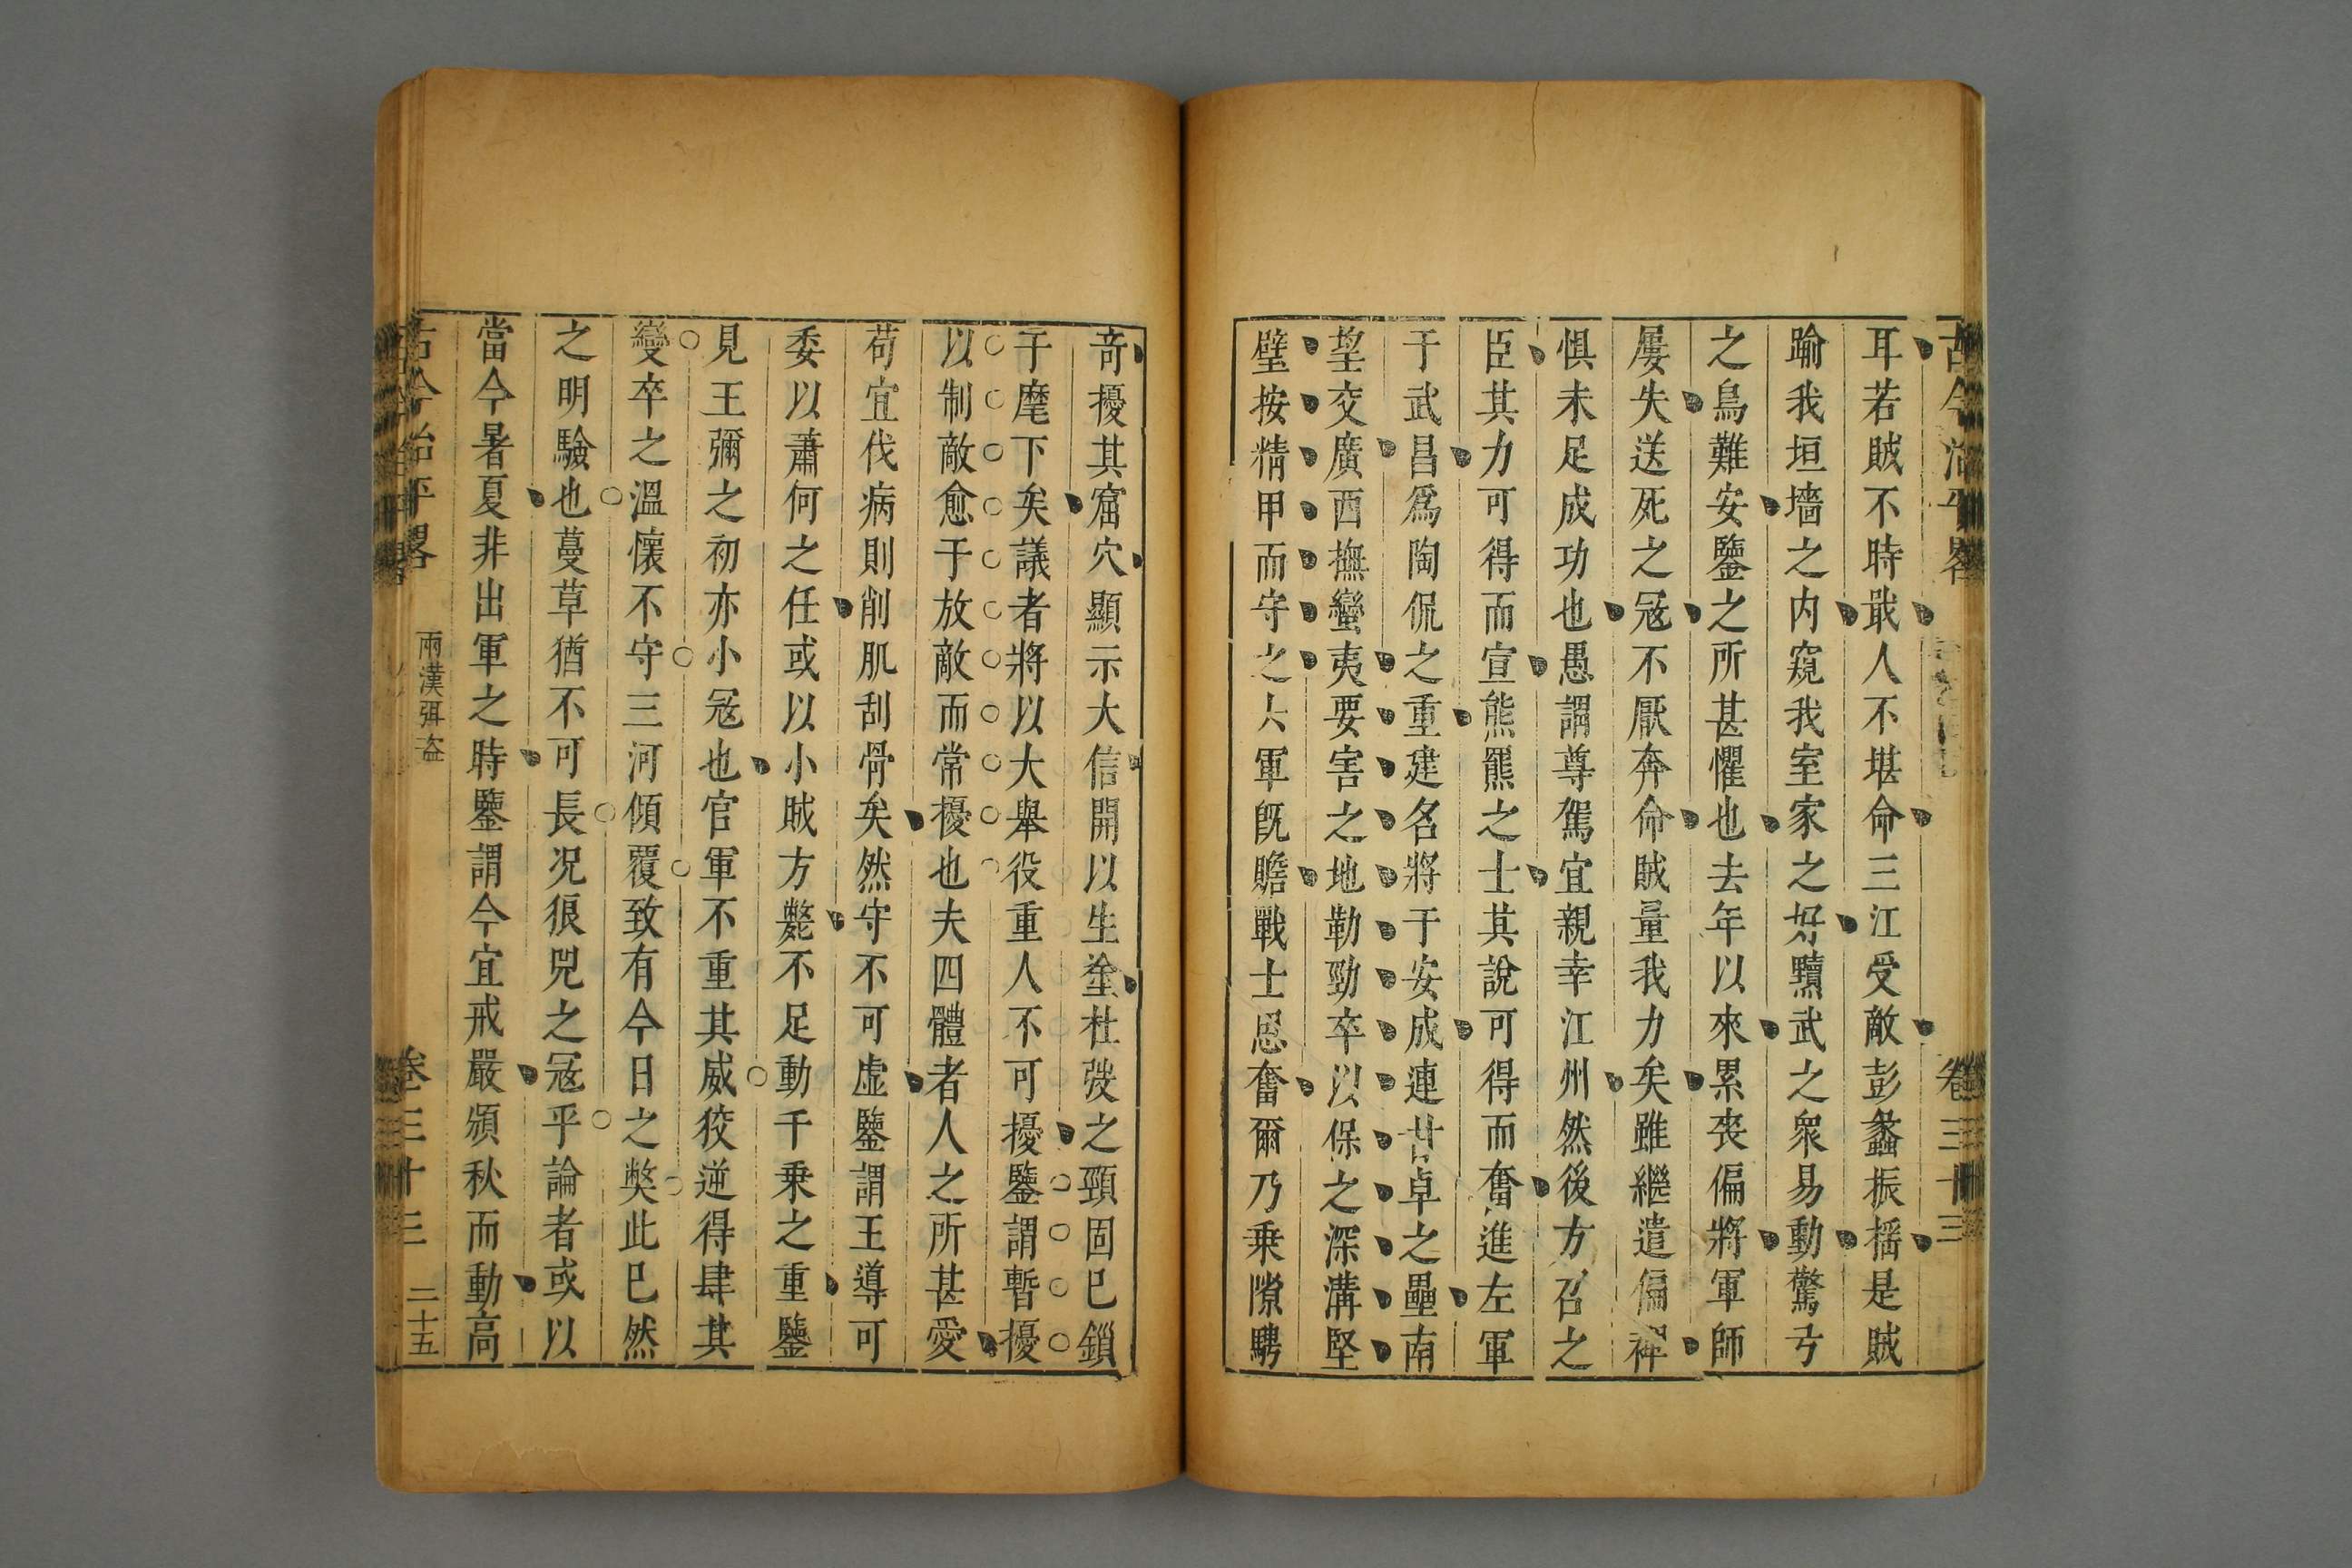 古今治平畧
卷三十三
耳若賊不時戢人不堪命三江受敵彭蠡振搖是賊
踰我垣墻之内窺我室家之好黷武之衆易動驚弓
之鳥難安鑒之所甚懼也去年以來累喪偏將軍師
屢失送死之冦不厭奔命賊量我力矣雖繼遣偏裨
惧未足成功也愚謂尊駕宜親幸江州然後方召之
臣其力可得而宣熊羆之士其說可得而奮進左軍
于武昌爲陶侃之重建名將于安成連甘卓之壘南
望交廣西撫蠻夷要害之地勒勁卒以保之深溝堅
壁按精甲而守之六軍旣贍戰士思奮爾乃乗隙騁
奇擾其窟穴顯示大信開以生塗杜弢之頸固巳鎖
于麾下矣議者將以大舉役重人不可擾鑒謂暫擾
以制敵愈于放敵而常擾也夫四體者人之所甚愛
苟宜伐病則削肌刮骨矣然守不可虚鑒謂王導可
委以蕭何之任或以小賊方斃不足動千乗之重鑒
見王彌之初亦小冦也官軍不重其威狡逆得肆其
變卒之溫懷不守三河傾覆致有今日之獘此巳然
之明驗也蔓草猶不可長况狼兕之冦乎論者或以
當今暑夏非出軍之時鑒謂今宜戒嚴須秋而動高
古今治平畧
兩漢弭盗
卷三十三
二十五